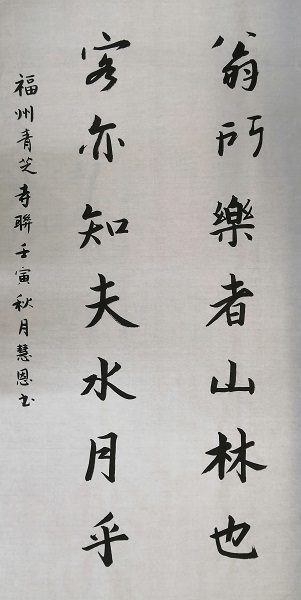 翁所樂者山林也
客亦知夫水月乎
福州青芝寺聯壬寅秋月慧恩书